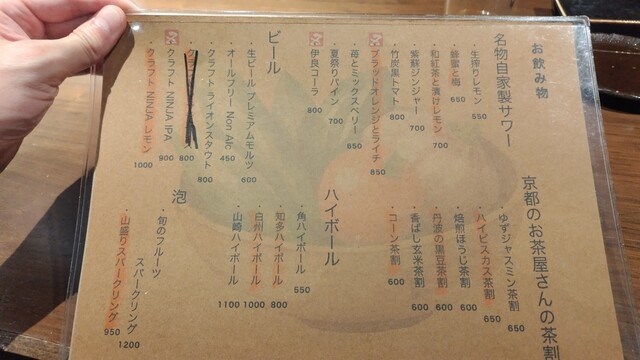 お飲み物
名物自家製サワー
・生搾りレモン 550
・蜂蜜と梅 650
・和紅茶と漬けレモン 700
・紫蘇ジンジャー 700
・竹炭黒トマト 800
・ブラッドオレンジとライチ 850
・苺とミックスベリー 850
・夏祭りパイン 700
・伊良コーラ 800
ビール
・生ビール プレミアムモルツ 600
・オールフリー Non Alc 450
・クラフト ライオンスタウト 800
800
・クラフト NINJA IPA 900
・クラフト NINJA レモン 1000
京都のお茶屋さんの茶割
・ゆずジャスミン茶割 650
・ハイビスカス茶割 650
・焙煎ほうじ茶割 600
・丹波の黒豆茶割 600
・香ばし玄米茶割 600
・コーン茶割 600
ハイボール
・角ハイボール 550
・知多ハイボール 800
・白州ハイボール 1000
・山崎ハイボール 1100
泡
・旬のフルーツ
スパークリング 1200
・山盛りスパークリング 950